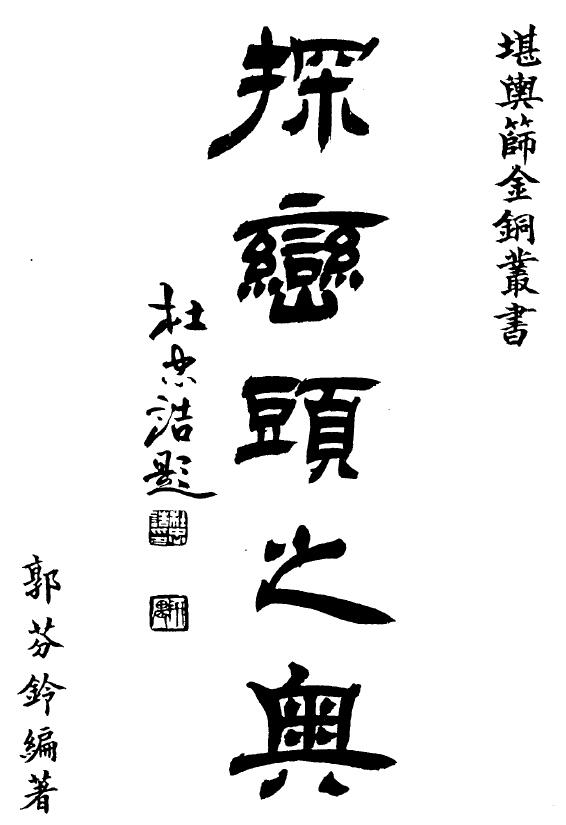 堪輿篩金銅叢書
探巒頭之奧
杜忠誥題
郭芬鈴編著